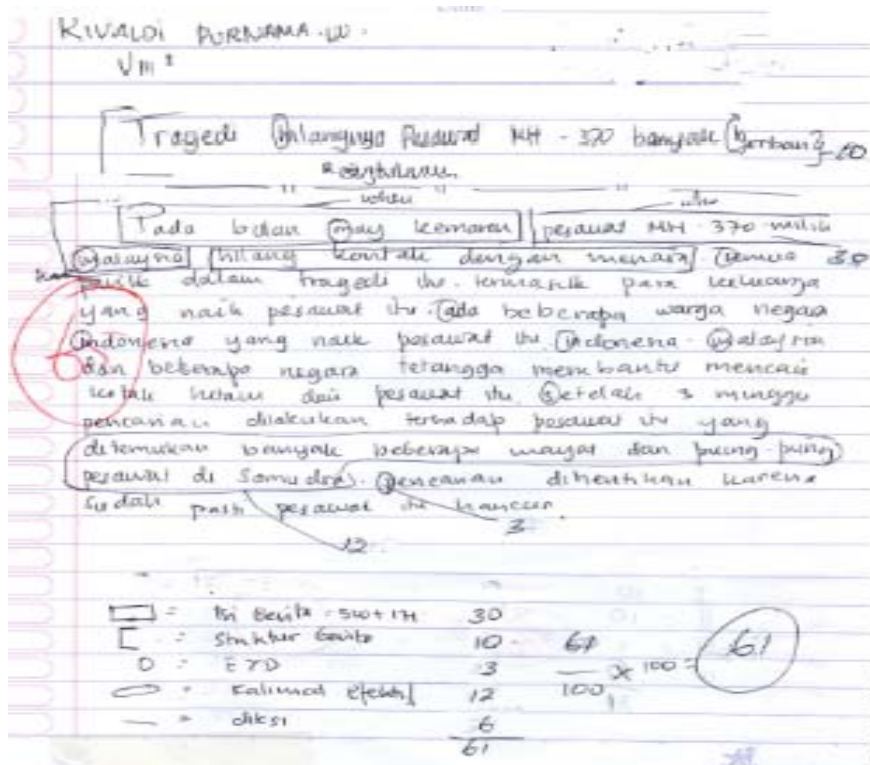 RIVALDI PURNAMA.W.
VIII
Tragedi hilangnya Pesawat MH-370 banyak 10
when who
Pada bulan may kemaren pesawat MH-370 milik
Malaysia hilang kontak dengan menara. Semua 30
panik dalam tragedi itu. termasuk para keluarga
yang naik pesawat itu. Ada beberapa warga negara
indonesia yang naik pesawat itu. indonesia. Malaysia
dan beberapa negara tetangga membantu mencari
kotak hitam dari pesawat itu. Setelah 3 minggu
pencarian dilakukan terhadap pesawat itu yang
ditemukan banyak beberapa mayat dan puing-puing
pesawat di Samudra. Pencarian dihentikan karena
sudah pasti pesawat itu hancur.
3
12
= Isi Berita = 5W+1H 30
= Struktur berita 10 61
= EYD 3 — x 100 = 61
= Kalimat efektif 12 100
= diksi 6
61